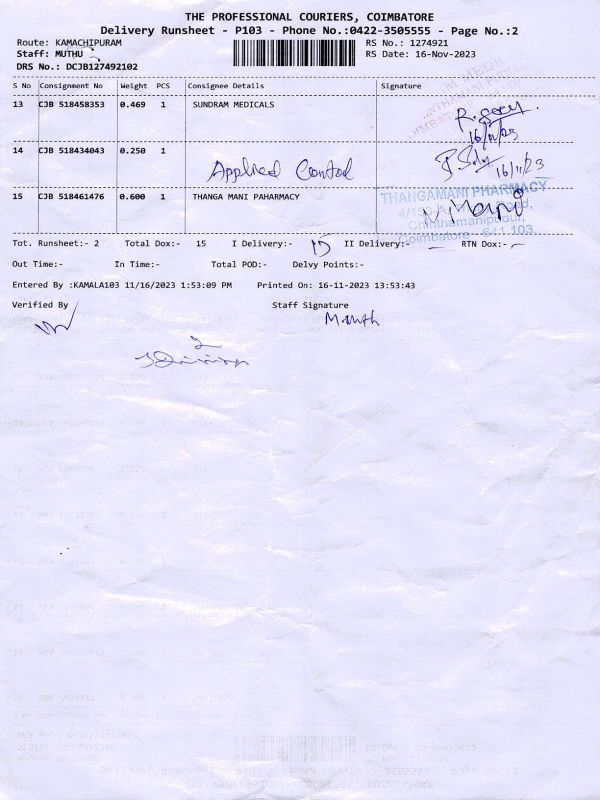 THE PROFESSIONAL COURIERS, COIMBATORE
Delivery Runsheet - P103 - Phone No.:0422-3505555 - Page No.:2
Route: KAMACHIPURAM RS No.: 1274921
Staff: MUTHU RS Date: 16-Nov-2023
DRS No.: DCJB127492102
S No Consignment No Weight PCS Consignee Details Signature
13 CJB 518458353 0.469 1 SUNDRAM MEDICALS
16/11/23
14 CJB 518434043 0.250 1
Applied Control 16/11/23
15 CJB 518461476 0.600 1 THANGA MANI PAHARMACY
THANGAMANI PHARMACY
Chinthamanipudur,
Coimbatore - 641 103.
Mani
Tot. Runsheet:- 2 Total Dox:- 15 I Delivery:- 15 II Delivery:- — RTN Dox:- —
Out Time:- In Time:- Total POD:- Delvy Points:-
Entered By :KAMALA103 11/16/2023 1:53:09 PM Printed On: 16-11-2023 13:53:43
Verified By Staff Signature